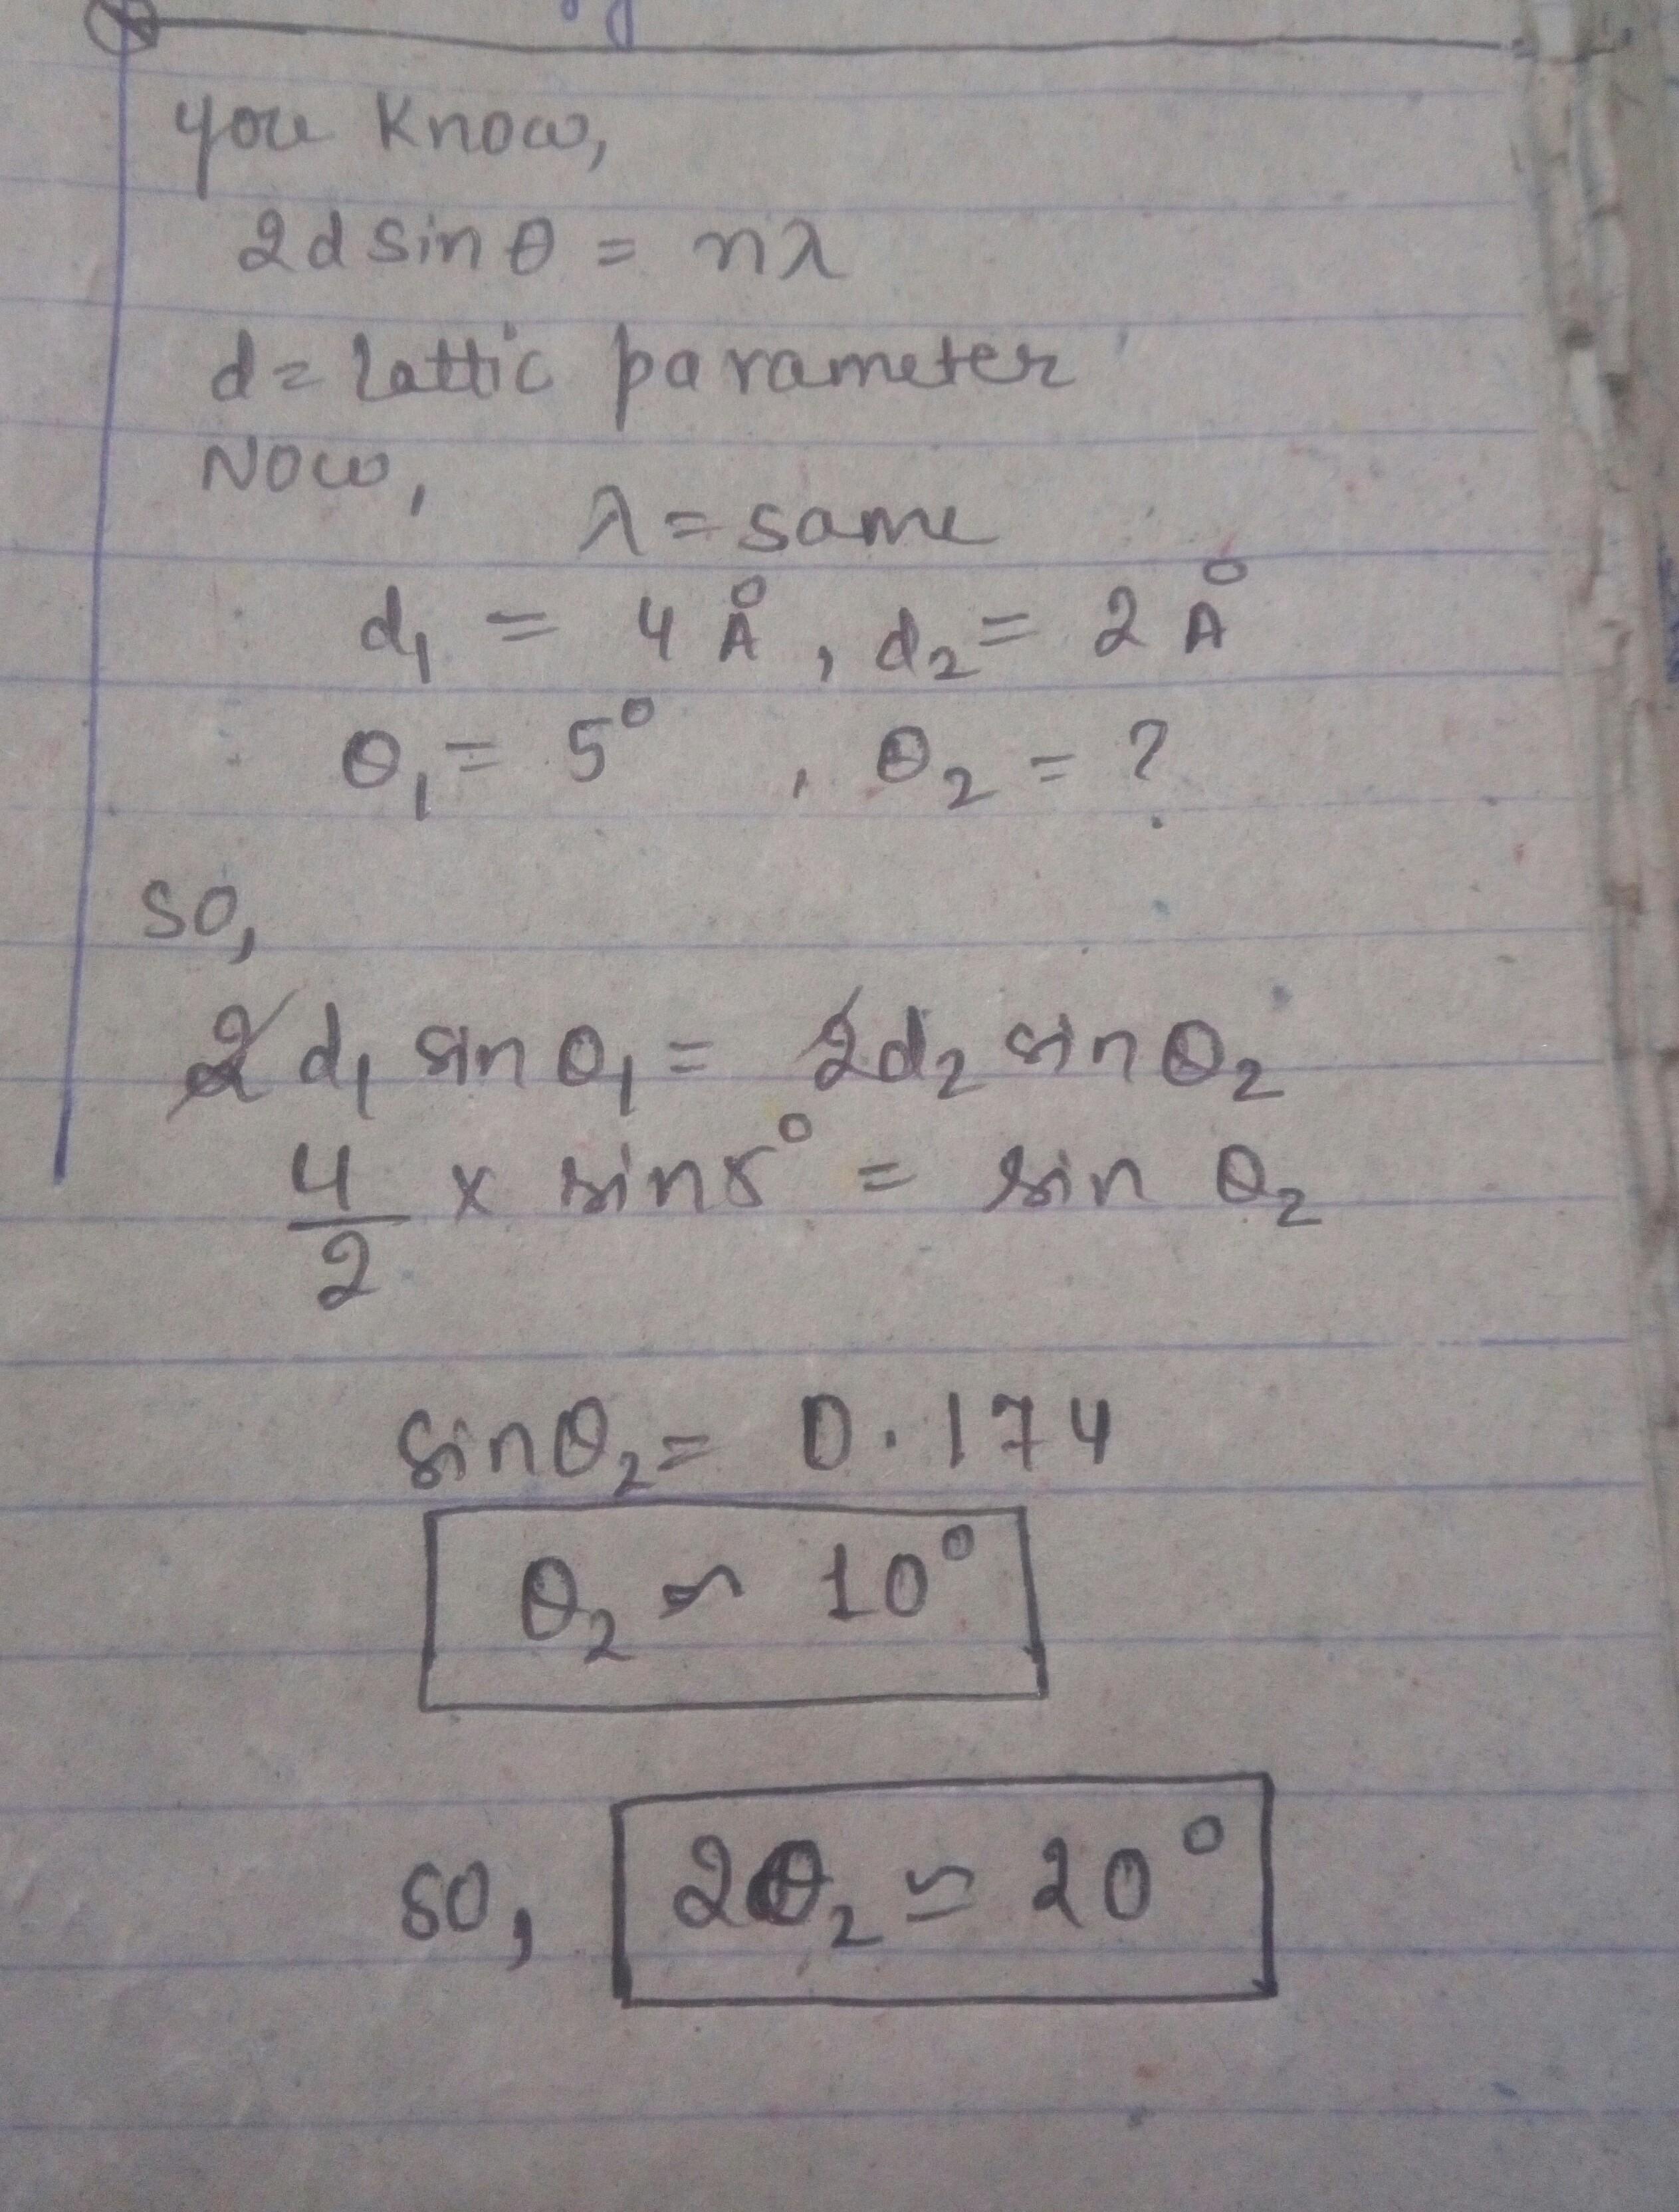 you know,
2d sin θ = nλ
d = lattic parameter
Now,
λ = same
d₁ = 4 Å , d₂ = 2 Å
θ₁ = 5° , θ₂ = ?
so,
2 d₁ sin θ₁ = 2d₂ sin θ₂
4/2 × sin 5° = sin θ₂
sin θ₂ = 0.174
θ₂ ≈ 10°
so, 2θ₂ ≃ 20°